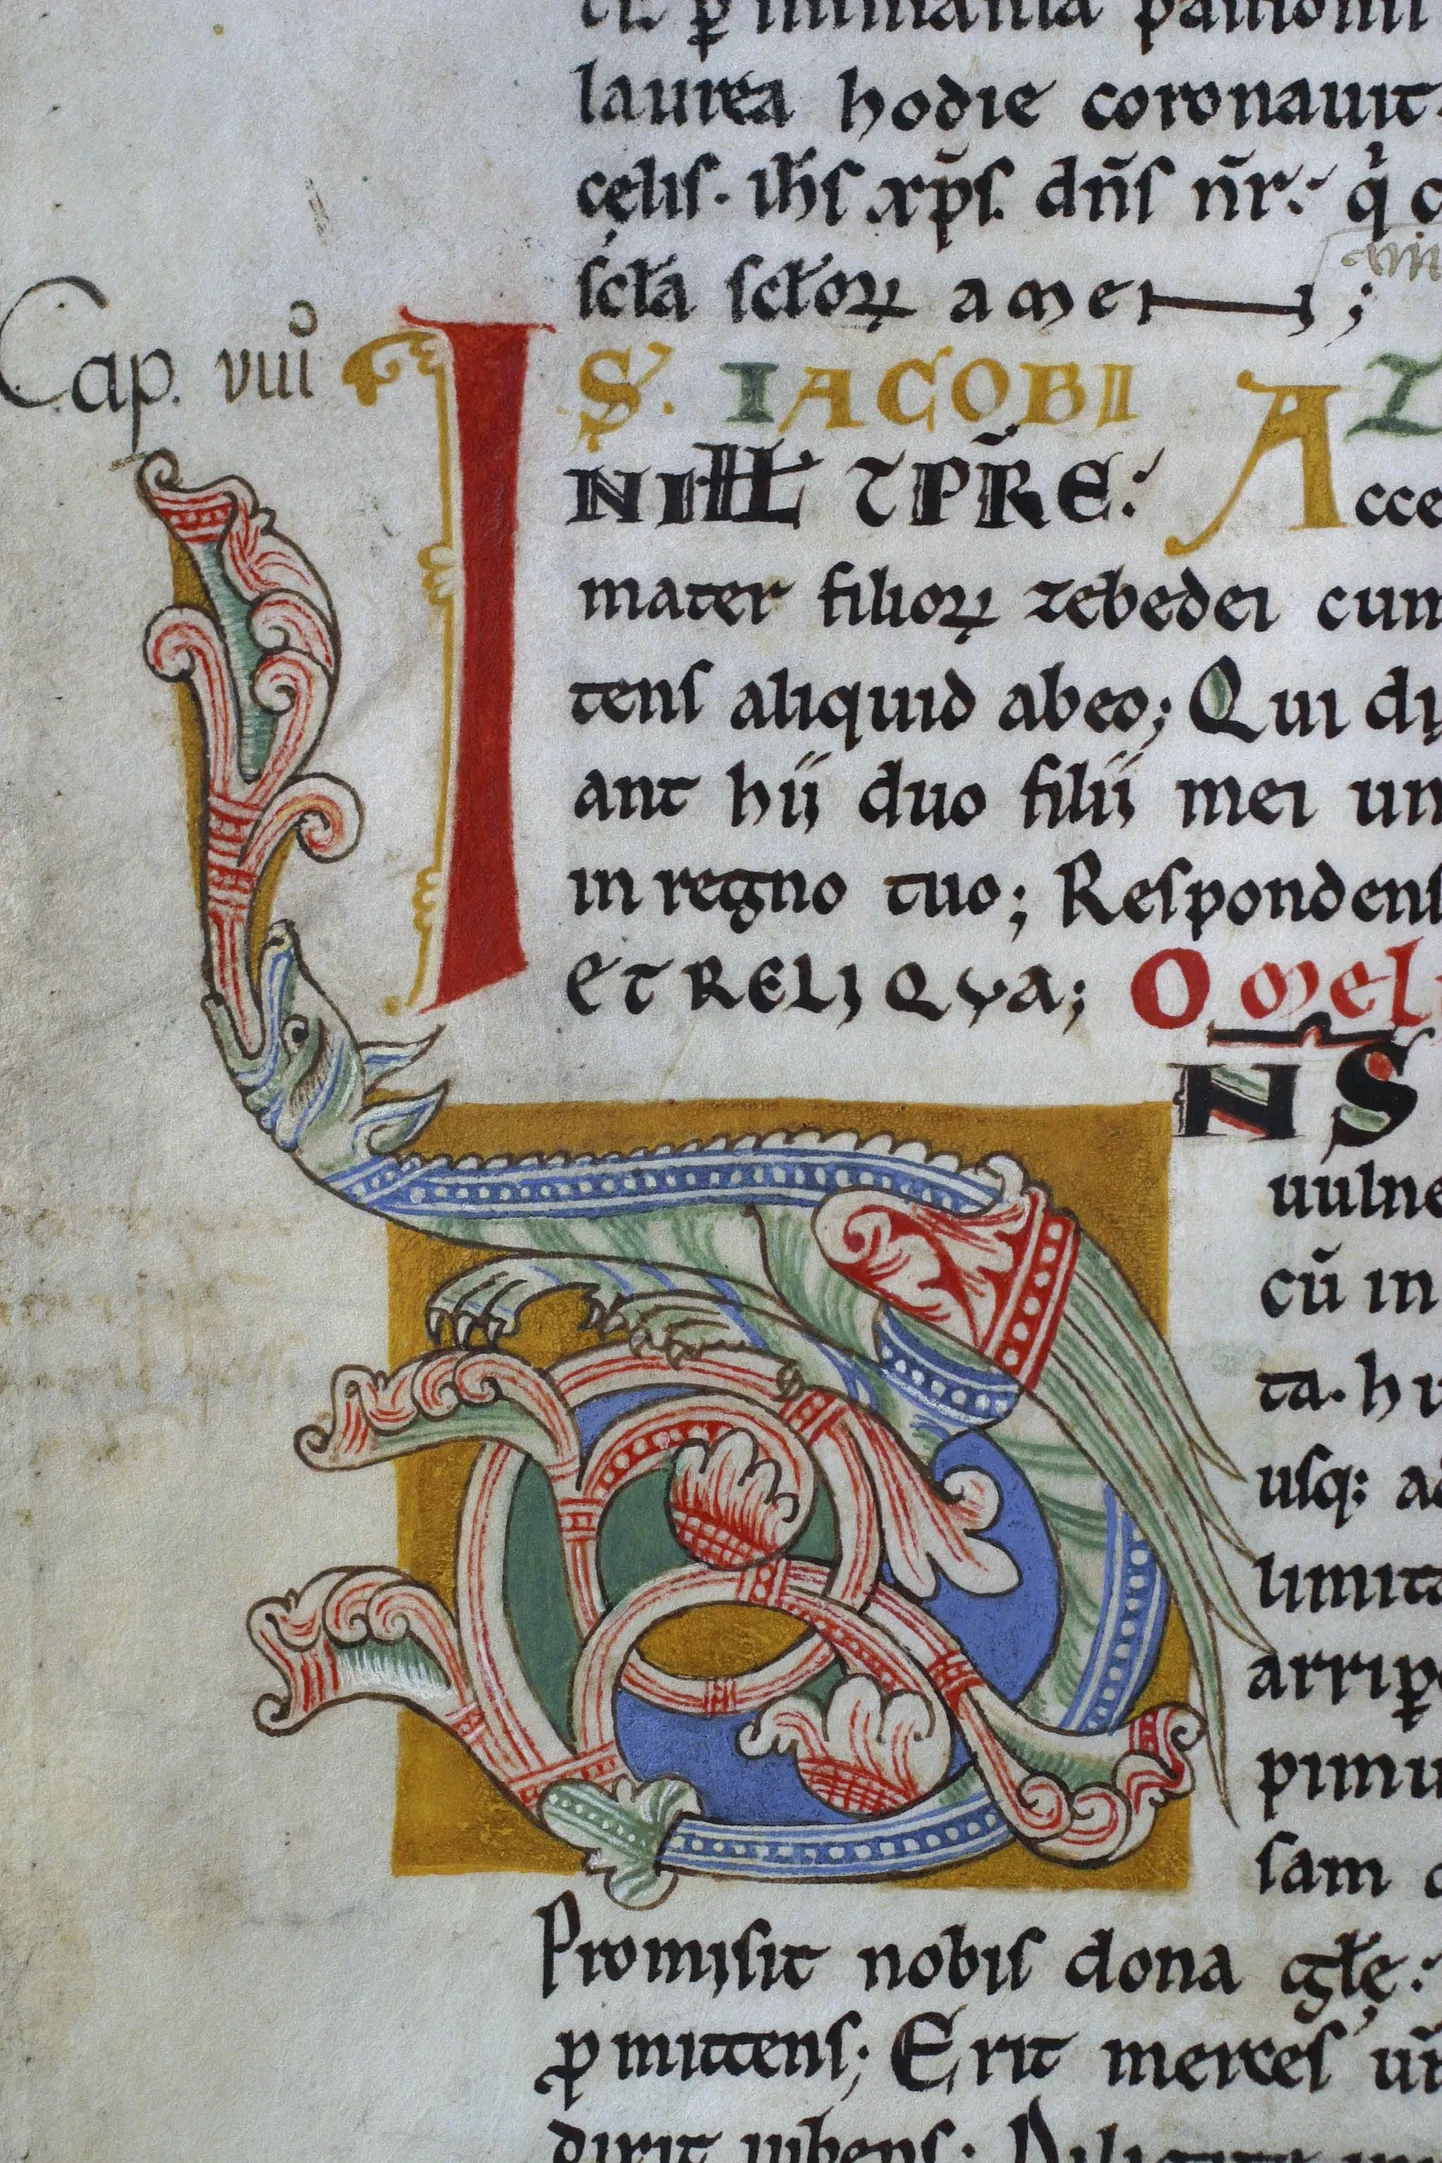 laurea hodie coronauit.
cęlis. ih̅s xp̅s. dn̅s nr̅:
scl̅a scl̅oꝝ amen;
Cap. viiiº
I S̓. IACOBI
Acce
mater filioꝝ zebedei cum
tens aliquid abeo; Qui dy
ant hii duo filii mei un
in regno tuo; Respondens
ET RELIQVA; Omeli
NS
uulne
cu̅ in
ta. hu
usq: ad
limita
arripe
pimu
sam
Promisit nobis dona gl̅ę:
ꝓmittens; Erit merces ur̅